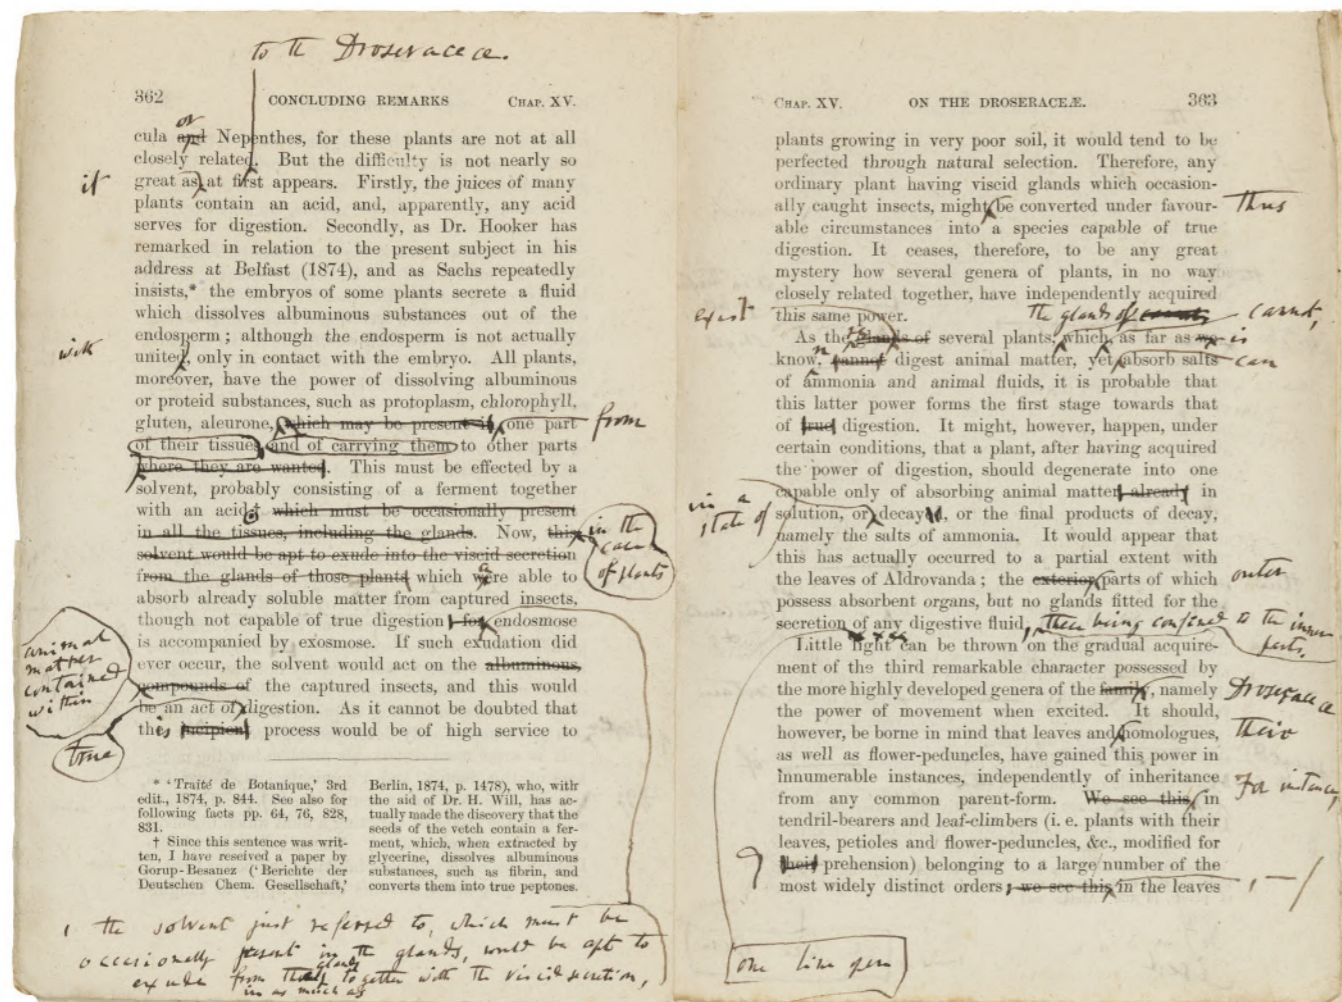 to the Droseraceae.
362 CONCLUDING REMARKS CHAP. XV.
or
cula and Nepenthes, for these plants are not at all
closely related. But the difficulty is not nearly so
it
great as at first appears. Firstly, the juices of many
plants contain an acid, and, apparently, any acid
serves for digestion. Secondly, as Dr. Hooker has
remarked in relation to the present subject in his
address at Belfast (1874), and as Sachs repeatedly
insists,* the embryos of some plants secrete a fluid
which dissolves albuminous substances out of the
endosperm; although the endosperm is not actually
with
united, only in contact with the embryo. All plants,
moreover, have the power of dissolving albuminous
or proteid substances, such as protoplasm, chlorophyll,
gluten, aleurone, which may be present in one part
from
of their tissues, and of carrying them to other parts
where they are wanted. This must be effected by a
solvent, probably consisting of a ferment together
with an acid,† which must be occasionally present
in all the tissues, including the glands. Now, this
in the
case
of plants
solvent would be apt to exude into the viscid secretion
from the glands of those plants which were able to
absorb already soluble matter from captured insects,
though not capable of true digestion, for endosmose
is accompanied by exosmose. If such exudation did
ever occur, the solvent would act on the albuminous
animal
matter
contained
within
compounds of the captured insects, and this would
be an act of digestion. As it cannot be doubted that
true
this incipient process would be of high service to
* 'Traité de Botanique,' 3rd
edit., 1874, p. 844. See also for
following facts pp. 64, 76, 828,
831.
† Since this sentence was writ-
ten, I have received a paper by
Gorup-Besanez ('Berichte der
Deutschen Chem. Gesellschaft,'
Berlin, 1874, p. 1478), who, with
the aid of Dr. H. Will, has ac-
tually made the discovery that the
seeds of the vetch contain a fer-
ment, which, when extracted by
glycerine, dissolves albuminous
substances, such as fibrin, and
converts them into true peptones.
the solvent just referred to, which must be
occasionally present in the glands, would be apt to
glands
exude from the together with the viscid secretion,
in as much as
CHAP. XV. ON THE DROSERACEÆ. 363
plants growing in very poor soil, it would tend to be
perfected through natural selection. Therefore, any
ordinary plant having viscid glands which occasion-
ally caught insects, might be converted under favour-
thus
able circumstances into a species capable of true
digestion. It ceases, therefore, to be any great
mystery how several genera of plants, in no way
closely related together, have independently acquired
this same power.
exist
the glands of cannot,
As the glands of several plants, which, as far as we
is
know, cannot digest animal matter, yet absorb salts
can
of ammonia and animal fluids, it is probable that
this latter power forms the first stage towards that
of true digestion. It might, however, happen, under
certain conditions, that a plant, after having acquired
the power of digestion, should degenerate into one
capable only of absorbing animal matter already in
in a
state of
solution, or decayed, or the final products of decay,
namely the salts of ammonia. It would appear that
this has actually occurred to a partial extent with
the leaves of Aldrovanda; the exterior parts of which
outer
possess absorbent organs, but no glands fitted for the
secretion of any digestive fluid,
these being confined to the inner
parts.
Little light can be thrown on the gradual acquire-
ment of the third remarkable character possessed by
the more highly developed genera of the family, namely
Droseraceae
the power of movement when excited. It should,
however, be borne in mind that leaves and homologues,
their
as well as flower-peduncles, have gained this power in
innumerable instances, independently of inheritance
from any common parent-form. We see this in
For instance,
tendril-bearers and leaf-climbers (i. e. plants with their
leaves, petioles and flower-peduncles, &c., modified for
their prehension) belonging to a large number of the
most widely distinct orders; we see this in the leaves
one line open